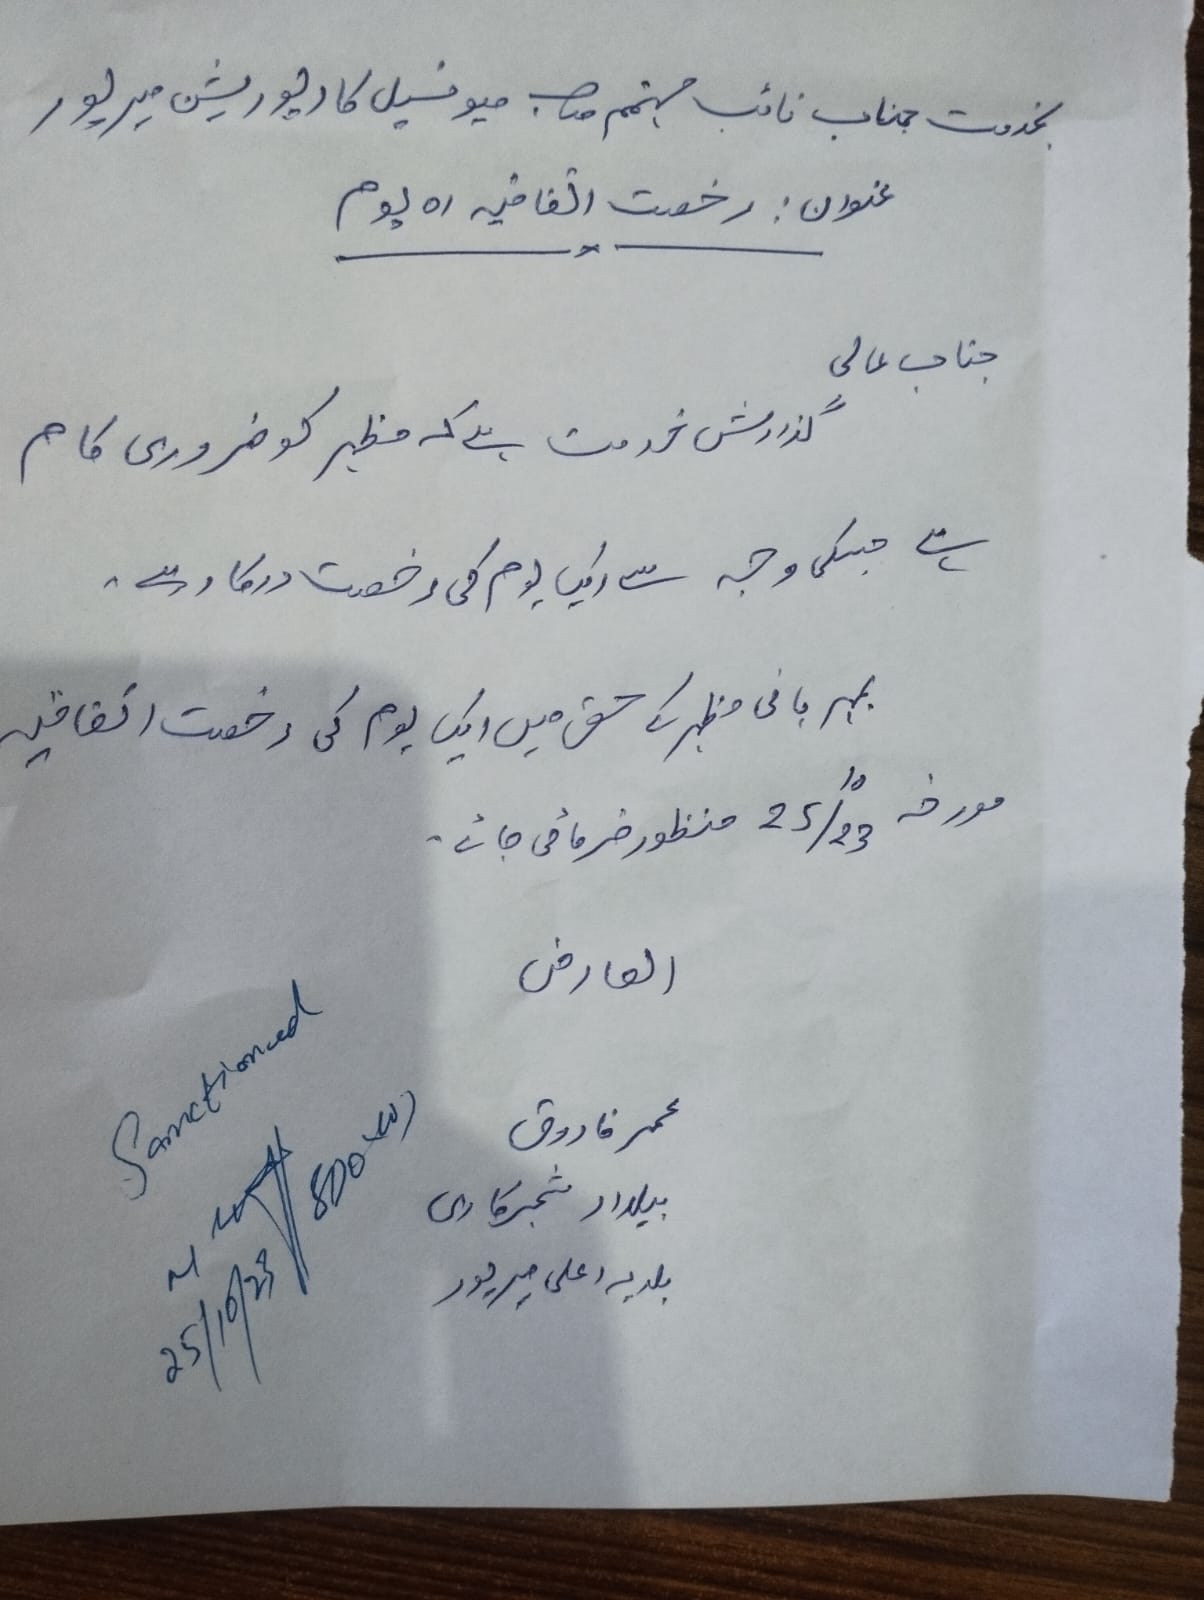 بخدمت جناب نائب مہتمم صاحب میونسپل کارپوریشن میرپور
عنوان: رخصت اتفاقیہ 01 یوم
جناب عالی
گذارش خدمت ہے کہ مظہر کو ضروری کام
ہے جسکی وجہ سے ایک یوم کی رخصت درکار ہے۔
بہر بانی مظہر کے حق میں ایک یوم کی رخصت اتفاقیہ
مورخہ 25/10/23 منظور فرمائی جائے۔
العارض
عمر فاروق
بیلدار شجرکاری
بلدیہ اعلی میرپور
Sanctioned
SDO
25/10/23